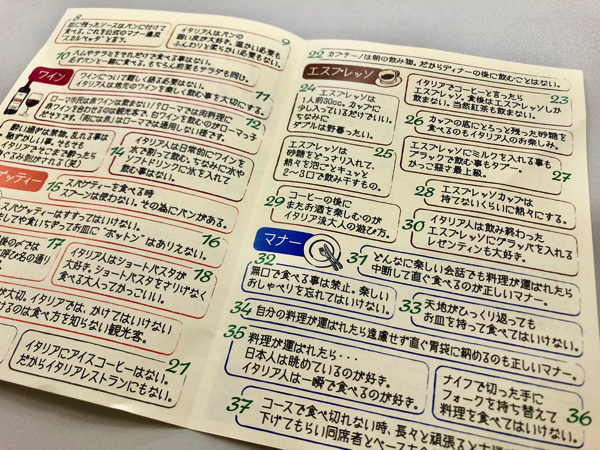 8
皿に残ったソースはパンに付けて
食べる。これを公式のマナー違反
"スカルペッタ"と言う。
イタリア人はパンの
固い皮が大好き。温かい必要も
ふんわりと柔らかい必要もない。
9
10
ハムやサラミをそれだけで食べる事はない。
必ずパンと一緒に食べる。
ワイン
ワインについて難しく語る必要はない。
イタリア人は地元のワインを楽しく飲む事を大切にする。
11
ローマの虎は赤ワインは飲まない!?ローマでは肉料理に
12
酔い過ぎは禁物。乱れる事は
恥ずかしい事。そもそも
イタリアでそこまで酔ったら
14
イタリア人は日常的にワインを
水で割って飲む。ちなみに水や
ソフトドリンクに氷を入れて
飲む事はない。
15
スパゲティーを食べる時
スプーンは使わない。その為にパンがある。
スパゲッティーはすすってはいけない。
16
17
イタリア人はショートパスタが
大好き。ショートパスタをさりげなく
食べる大人ってかっこいい。
18
が大切。イタリアでは、かけてはいけない
けるのは食べ方を知らない観光客。
イタリアにアイスコーヒーはない。
だからイタリアレストランにもない。
21
22
カプチーノは朝の飲み物。だからディナーの後に飲むことはない。
エスプレッソ
イタリアでコーヒーと言ったら
エスプレッソ。食後はエスプレッソしか
飲まない。当然紅茶も飲まない。
23
24
エスプレッソは
1人前30cc。カップに
少し入っているだけでいい。
ちなみに
ダブルは野暮ったい。
26
カップの底にとろっと残った砂糖を
食べるのもイタリア人のお楽しみ。
エスプレッソは
砂糖をどっさり入れて、
熱々を泡ごとキュッと
2~3口で飲み干すもの。
25
エスプレッソにミルクを入れる事も
ブラックで飲む事もタブー。
かっこ悪さ最上級。
27
28
エスプレッソカップは
持てないくらいに熱々にする。
29
コーヒーの後に
またお酒を楽しむのが
イタリア流大人の遊び方。
30
イタリア人は飲み終わった
エスプレッソにグラッパを入れる
レゼンティンも大好き。
マナー
31
どんなに楽しい会話でも料理が運ばれたら
中断して直ぐ食べるのが正しいマナー。
32
無口で食べる事は禁止。楽しい
おしゃべりを忘れてはいけない。
33
天地がひっくり返っても
お皿を持って食べてはいけない。
34
自分の料理が運ばれたら遠慮せず直ぐ胃袋に納めるのも正しいマナー。
35
料理が運ばれたら・・・
日本人は眺めているのが好き。
イタリア人は一瞬で食べるのが好き。
ナイフで切った手に
フォークを持ち替えて
料理を食べてはいけない。
36
37
コースで食べ切れない時、長々と頑張ると
下げてもらい同席者とペース